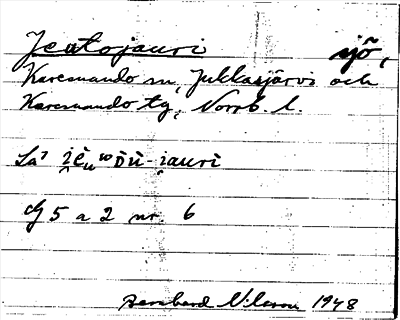 Jeutojauri sjö,
Karesuando sn, Jukkasjärvi och
Karesuando tg, Norrb. l.
i̯ēu
5 a 2 nr. 6
Bernhard Nilsson 1948